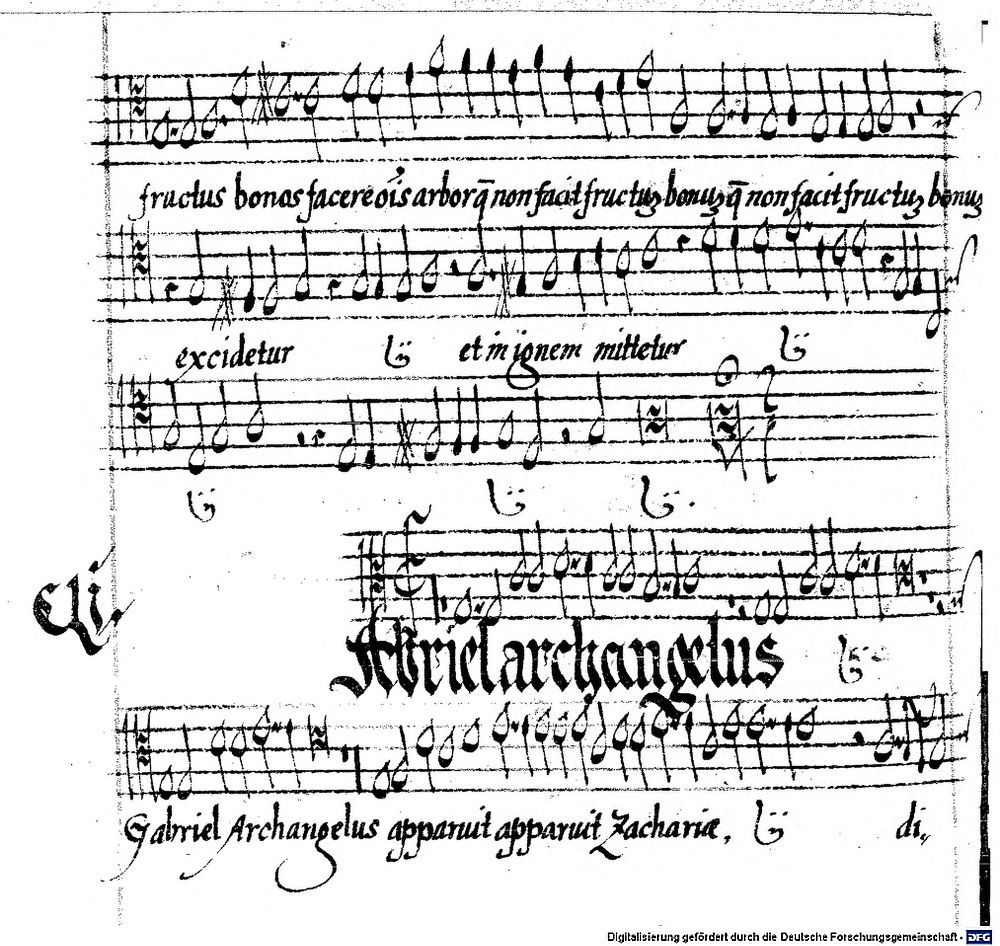 fructus bonos facere oı̃s arbor q̄ non facit fructuʒ bonuʒ q̄ non facit fructuʒ bonuʒ
excidetur ij et in ignem mittetur ij
ij ij ij.
Gabriel archangelus ij
Gabriel Archangelus apparuit apparuit Zachariæ, ij di„
Digitalisierung gefördert durch die Deutsche Forschungsgemeinschaft - DFG